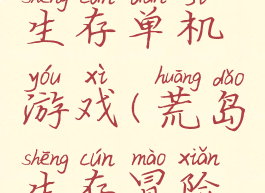 shēng cún dān jī
生存单机
yóu xì huāng dǎo
游戏(荒岛
shēng cún mào xiǎn
生存冒险